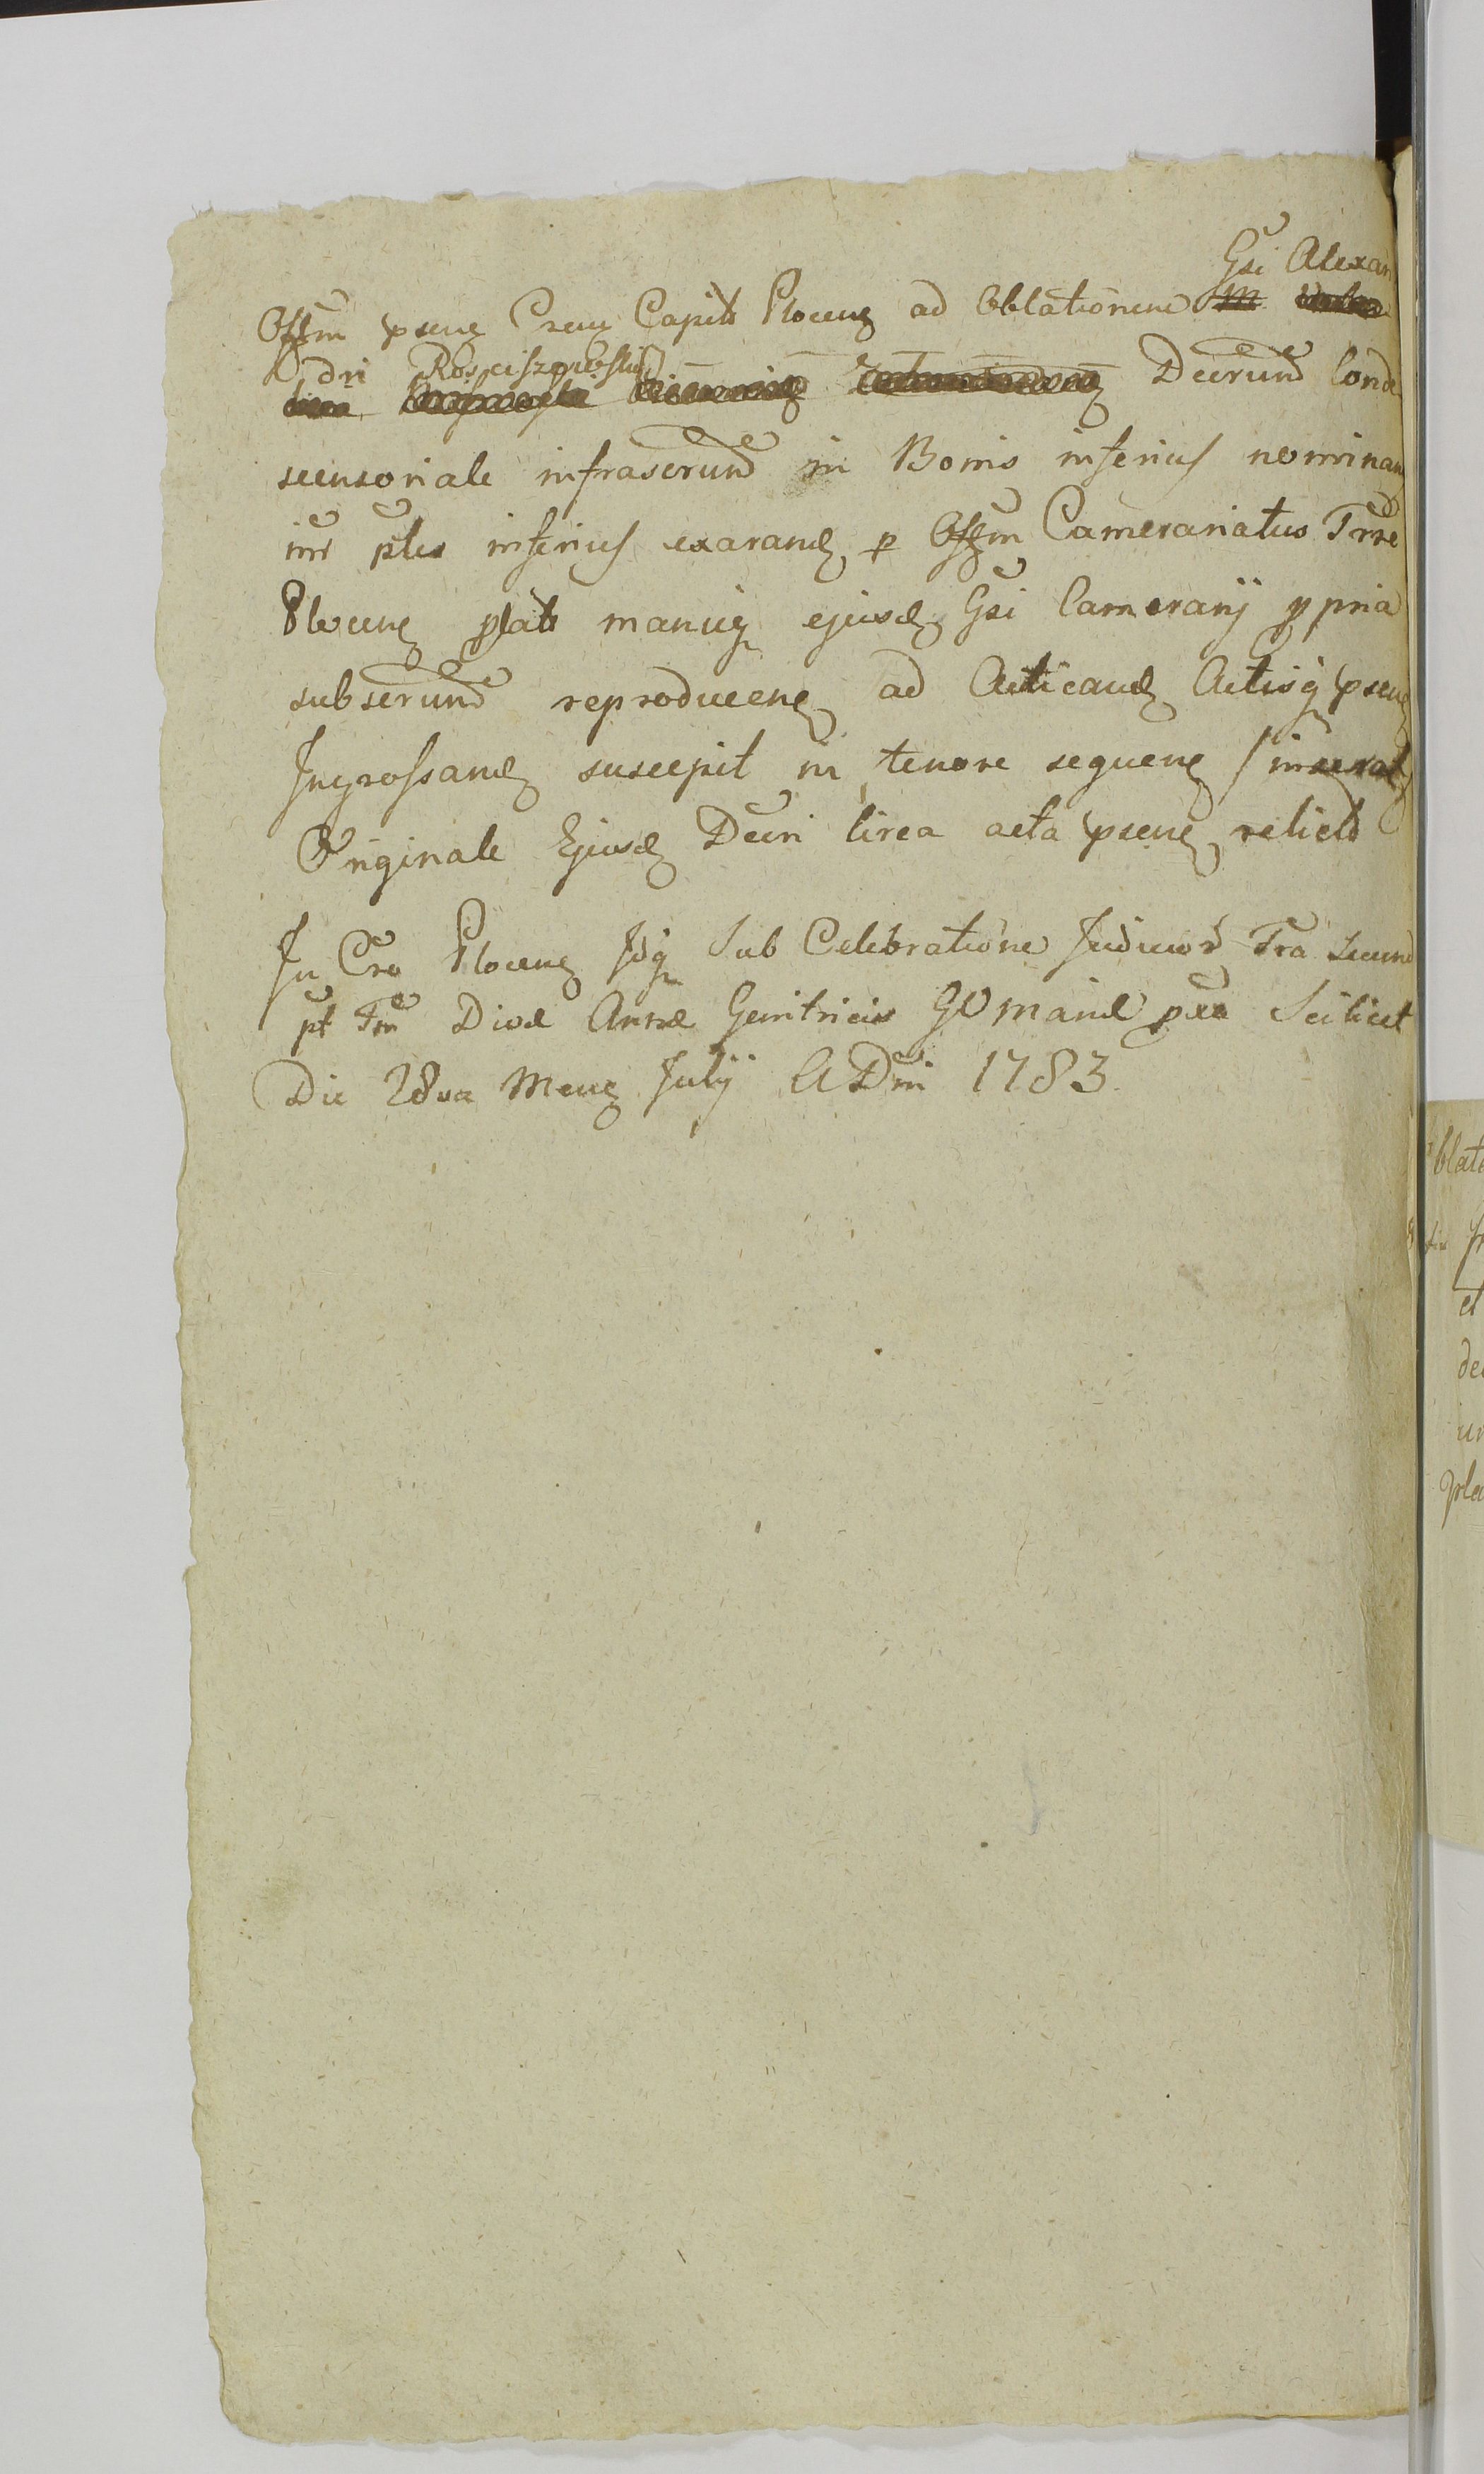 Gsi Alexan
Offm psens Crens Capitt Plocens ad Oblationem
dri Rosciszewski
Decrund Conde
scensoriale infrascrund in Bonis inferius nominand
inr ptes inferius exarand p Offm Camerariatus Trrae
Plocens plats manuq ejusd Gsi Camerarij ppria
subscrund reproducens ad Acticand Actisq psens
Ingrossand suscepit in tenore sequens
Originale Ejusd Decri circa acta psens relicto
In Cro Plocens Idq Sub Celebratione Judicior Tra Secund
pt Fm Divae Annae Genitricis GVMariae pxa Scilicet
Die 28va Mens Julij ADni 1783
blato
et
de
pla